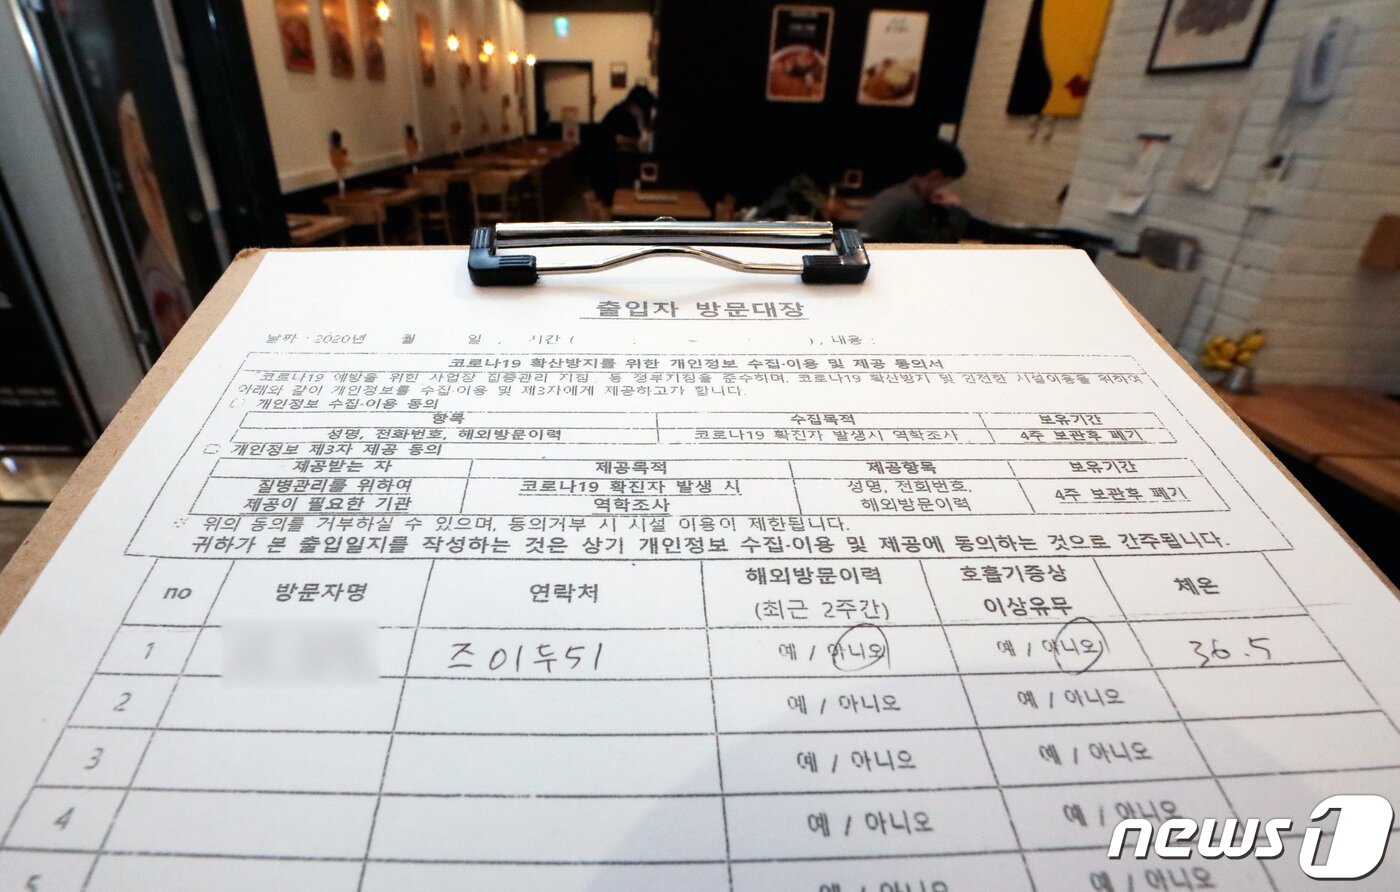 출입자 방문대장
날짜 : 2020년 월 일 , 시간 ( : ~ : ), 내용 :
코로나19 확산방지를 위한 개인정보 수집·이용 및 제공 동의서
"코로나19 예방을 위한 사업장 집중관리 지침" 등 정부지침을 준수하며, 코로나19 확산방지 및 안전한 시설이용을 위하여
아래와 같이 개인정보를 수집·이용 및 제3자에게 제공하고자 합니다.
개인정보 수집·이용 동의
항목 수집목적 보유기간
성명, 전화번호, 해외방문이력 코로나19 확진자 발생시 역학조사 4주 보관후 폐기
개인정보 제3자 제공 동의
제공받는 자 제공목적 제공항목 보유기간
질병관리를 위하여 코로나19 확진자 발생 시 성명, 전화번호,
제공이 필요한 기관 역학조사 해외방문이력 4주 보관후 폐기
위의 동의를 거부하실 수 있으며, 동의거부 시 시설 이용이 제한됩니다.
귀하가 본 출입일지를 작성하는 것은 상기 개인정보 수집·이용 및 제공에 동의하는 것으로 간주됩니다.
no 방문자명 연락처 해외방문이력 호흡기증상 체온
(최근 2주간) 이상유무
1 예 / 아니오 예 / 아니오 36.5
2 예 / 아니오 예 / 아니오
3 예 / 아니오 예 / 아니오
4 예 / 아니오 예 / 아니오
5 예 / 아니오 예 / 아니오
news1